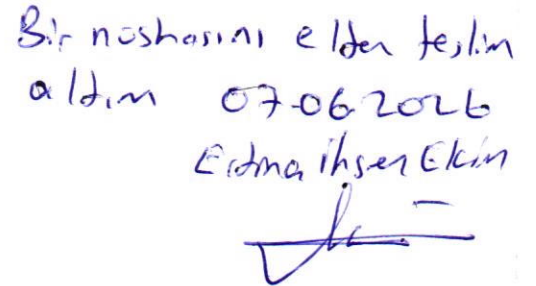 Bir nüshasını elden teslim
aldım 07.06.2026
İhsan Ekin